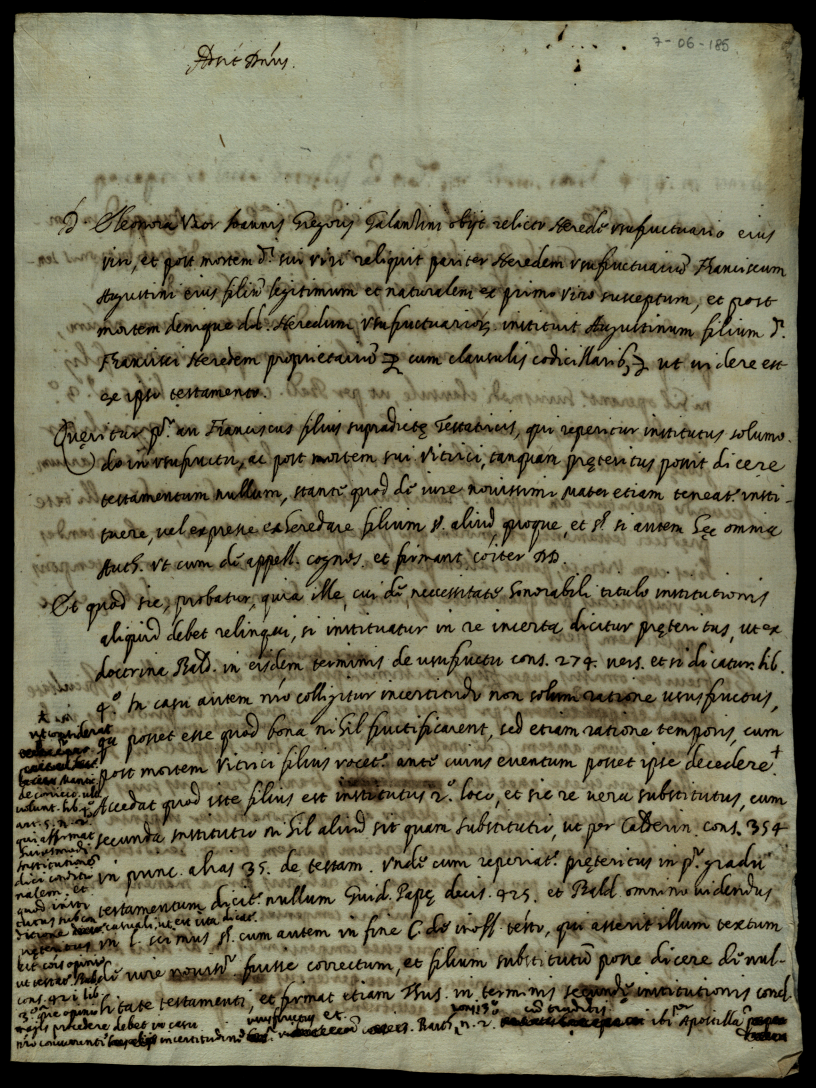 7-06-185
Adsit Dnus.
D. Eleonora Uxor Ioannis Gregorij Galandini obijt relicto Herede usufructuario eius
viro, et post mortem d.i sui viri reliquit pariter Heredem usufructuariũ Franciscum
Augustini eius filiũ legitimum et naturalem ex primo viro susceptum, et post
mortem denique dd. Heredum usufructuarior. instituit Augustinum filium d.i
Francisci Heredem proprietariũ cum clausulis codicillarib. ut videre est
ex ipso testamento.
Queritur p.o an Franciscus filius supradictę Testatricis, qui reperitur institutus solumo
do in usufructu, ac post mortem sui vitrici, tanquam pręteritus possit dicere
testamentum nullum, stante quod de iure novissimo Mater etiam teneat.r insti-
tuere, vel expresse exheredare filium §. aliud quoque, et §. si autem hęc omnia
Auth. ut cum de appell. cognos. et firmant cóiter DD.
Et quod sic, probatur, quia ille, cui de necessitate honorabili titulo institutionis
aliquid debet relinqui, si instituatur in re incerta dicitur pręteritus, ut ex
doctrina Bald. in eisdem terminis de usufructu cons. 274. vers. et si dicatur. lib.
4.o In casu autem nr̃o colligitur incertitudo non solum ratione ususfructus,
posset esse quod bona nihil fructificarent, sed etiam ratione temporis, cum
post mortem Vitrici filius vocet.r ante cuius eventum posset ipse decedere. †
Accedat quod iste filius est institutus 2.o loco, et sic re vera substitutus, cum
secunda institutio nihil aliud sit quam substitutio, ut per Calderin. cons. 354
in princ. alias 35. de testam. Unde cum reperiat.r pręteritus in p.o gradu
testamentum dicit.r nullum Guid. Papę decis. 425. et Bald. omnino videndus
in l. scimus §. cum autem in fine C. de inoff. testo, qui asserit illum textum
de iure noviss.o fuisse correctum, et filium substitutũ posse dicere de nul-
litate testamenti, et firmat etiam Rus. in terminis secundę institutionis concl.
ut considerat
Mantic.
de coniect. ult.
volunt. lib.
qui affirmat
huiusmodi
institutionẽ
dici conditio
nalem, et
quod insti
tutus sub con
ditione casuali, ut est ista dicat.r
pręteritus
cois opinio
ut testat. Rub.
cons. 42 lib.
3.o que opinio
magis procedere debet in casu
nr̃o concurrenti incertitudine ususfructus et
Bart. n. 2. ibi Apostilla